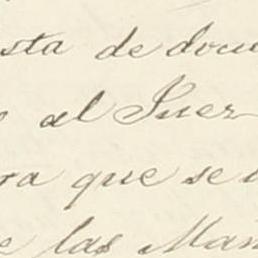 sta de docu
al Juez
ra que se
e las Man